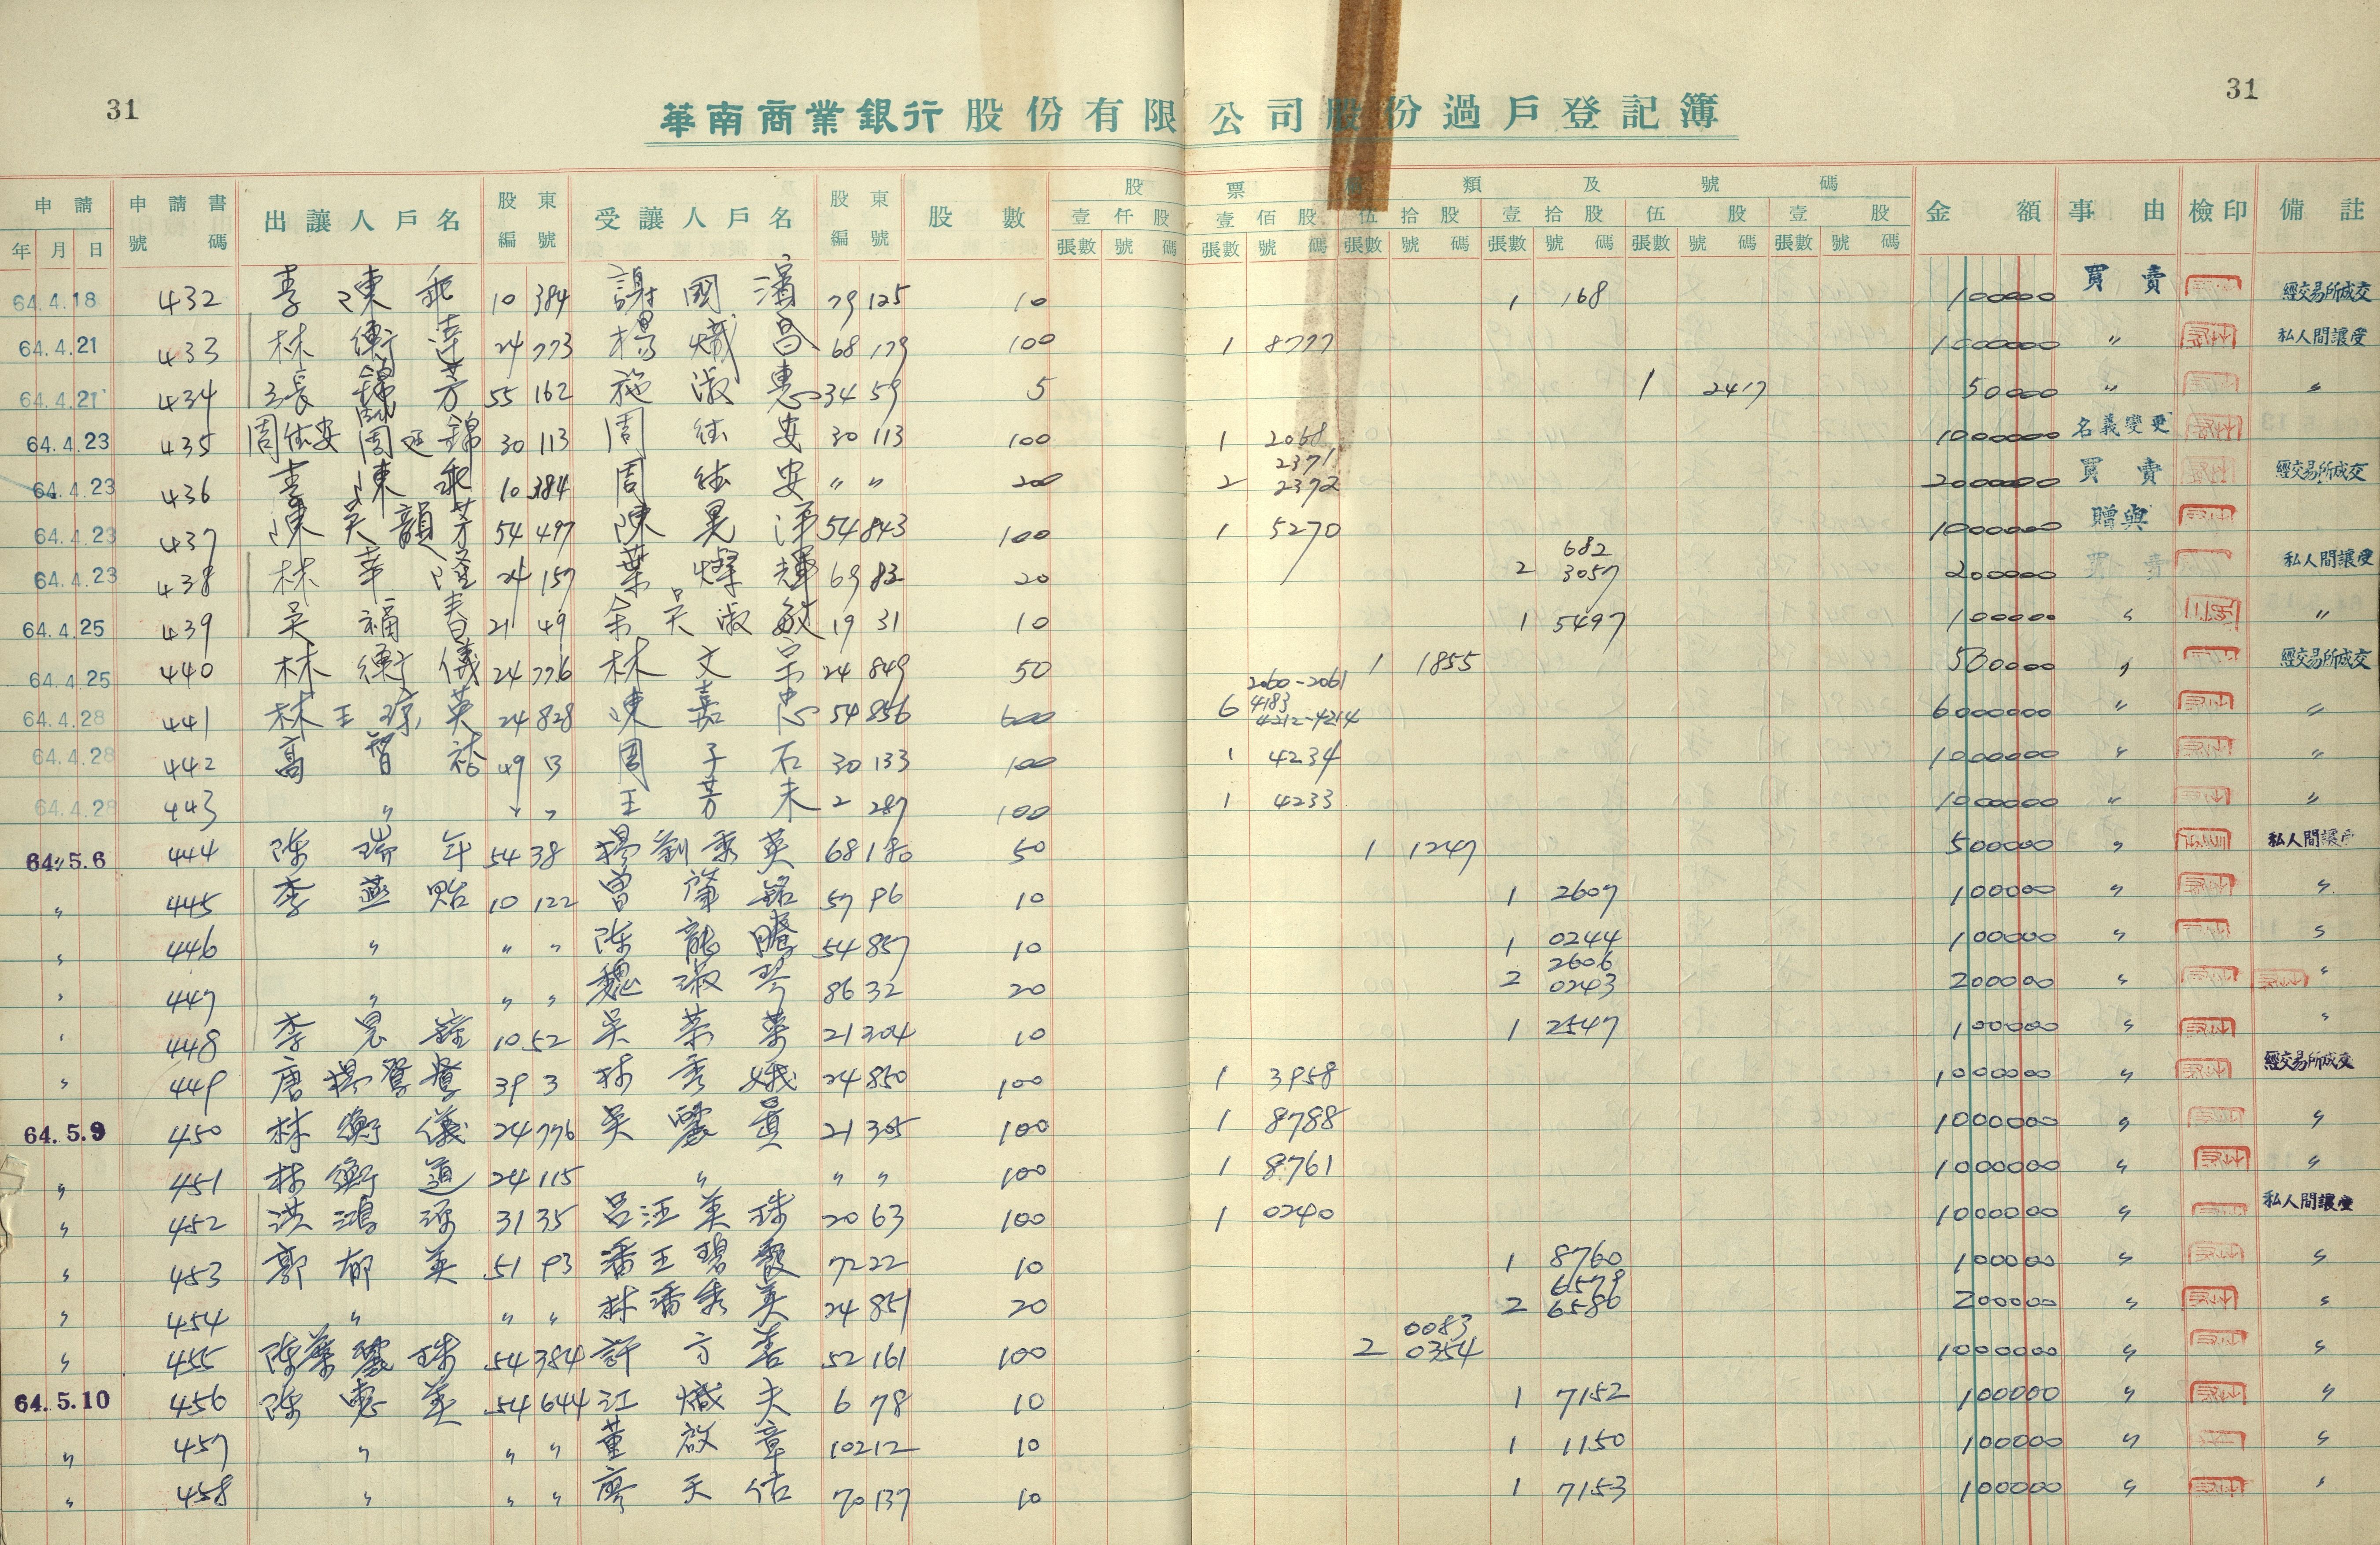 31
31
華南商業銀行股份有限公司股份過戶登記簿
申請 申請書 出讓人戶名 股東 受讓人戶名 股東 股數 股票種類及號碼 金額 事由 檢印 備註
年 月 日 號碼 編號 編號 壹仟股 壹佰股 伍拾股 壹拾股 伍股 壹股
張數 號碼 張數 號碼 張數 號碼 張數 號碼 張數 號碼 張數 號碼
64.4.18 432 李陳 10 384 謝國濱 79 125 10 1 168 100000 買賣 經交易所成交
64.4.21 433 林衡達 24 773 楊熾昌 68 179 100 1 8777 1000000 〃 私人間讓受
64.4.21 434 張錦芳 55 162 施淑惠 34 59 5 1 2417 50000 〃 〃
64.4.23 435 周延錦 30 113 周 安 30 113 100 1 2068 1000000 名義變更
64.4.23 436 李陳 10 384 周 安 〃 〃 200 2 2371 2372 2000000 買賣 經交易所成交
64.4.23 437 陳吳韻芳 54 497 陳晃 54 843 100 1 5270 1000000 贈與
64.4.23 438 林華隆 24 157 葉燦輝 69 82 20 2 682 3057 200000 買賣 私人間讓受
64.4.25 439 吳福春 21 49 余吳淑敏 19 31 10 1 5497 100000 〃 〃
64.4.25 440 林衡儀 24 776 林文宗 24 849 50 1 1855 500000 〃 經交易所成交
64.4.28 441 林王瓊英 24 828 陳嘉忠 54 856 600 6 2060-2061 4183 4212-4214 6000000 〃 〃
64.4.28 442 高智裕 49 13 周子石 30 133 100 1 4234 1000000 〃 〃
64.4.28 443 〃 〃 〃 王芳未 2 287 100 1 4233 1000000 〃 〃
64.5.6 444 陳瑞年 54 38 楊劉秀英 68 180 50 1 1247 500000 〃 私人間讓受
〃 445 李燕貽 10 122 曾 銘 57 96 10 1 2607 100000 〃 〃
〃 446 〃 〃 〃 陳龍騰 54 857 10 1 0244 100000 〃 〃
〃 447 〃 〃 〃 魏淑琴 86 32 20 2 2606 0243 200000 〃 〃
〃 448 李 10 52 吳 21 304 10 1 2547 100000 〃 〃
〃 449 唐楊鴛鴦 39 3 林秀娥 24 850 100 1 3958 1000000 〃 經交易所成交
64.5.9 450 林衡儀 24 776 吳麗真 21 305 100 1 8788 1000000 〃 〃
〃 451 林衡道 24 115 〃 〃 〃 100 1 8761 1000000 〃 〃
〃 452 洪鴻 31 35 呂汪美珠 20 63 100 1 0240 1000000 〃 私人間讓受
〃 453 郭郁英 51 93 潘王碧霞 72 22 10 1 8760 100000 〃 〃
〃 454 〃 〃 〃 林潘秀英 24 851 20 2 6579 6580 200000 〃 〃
〃 455 陳蔡麗珠 54 384 許方善 52 161 100 2 0083 0354 1000000 〃 〃
64.5.10 456 陳惠美 54 644 江熾夫 6 78 10 1 7152 100000 〃 〃
〃 457 〃 〃 〃 董啟章 10212 10 1 1150 100000 〃 〃
〃 458 〃 〃 〃 廖天佑 70 137 10 1 7153 100000 〃 〃